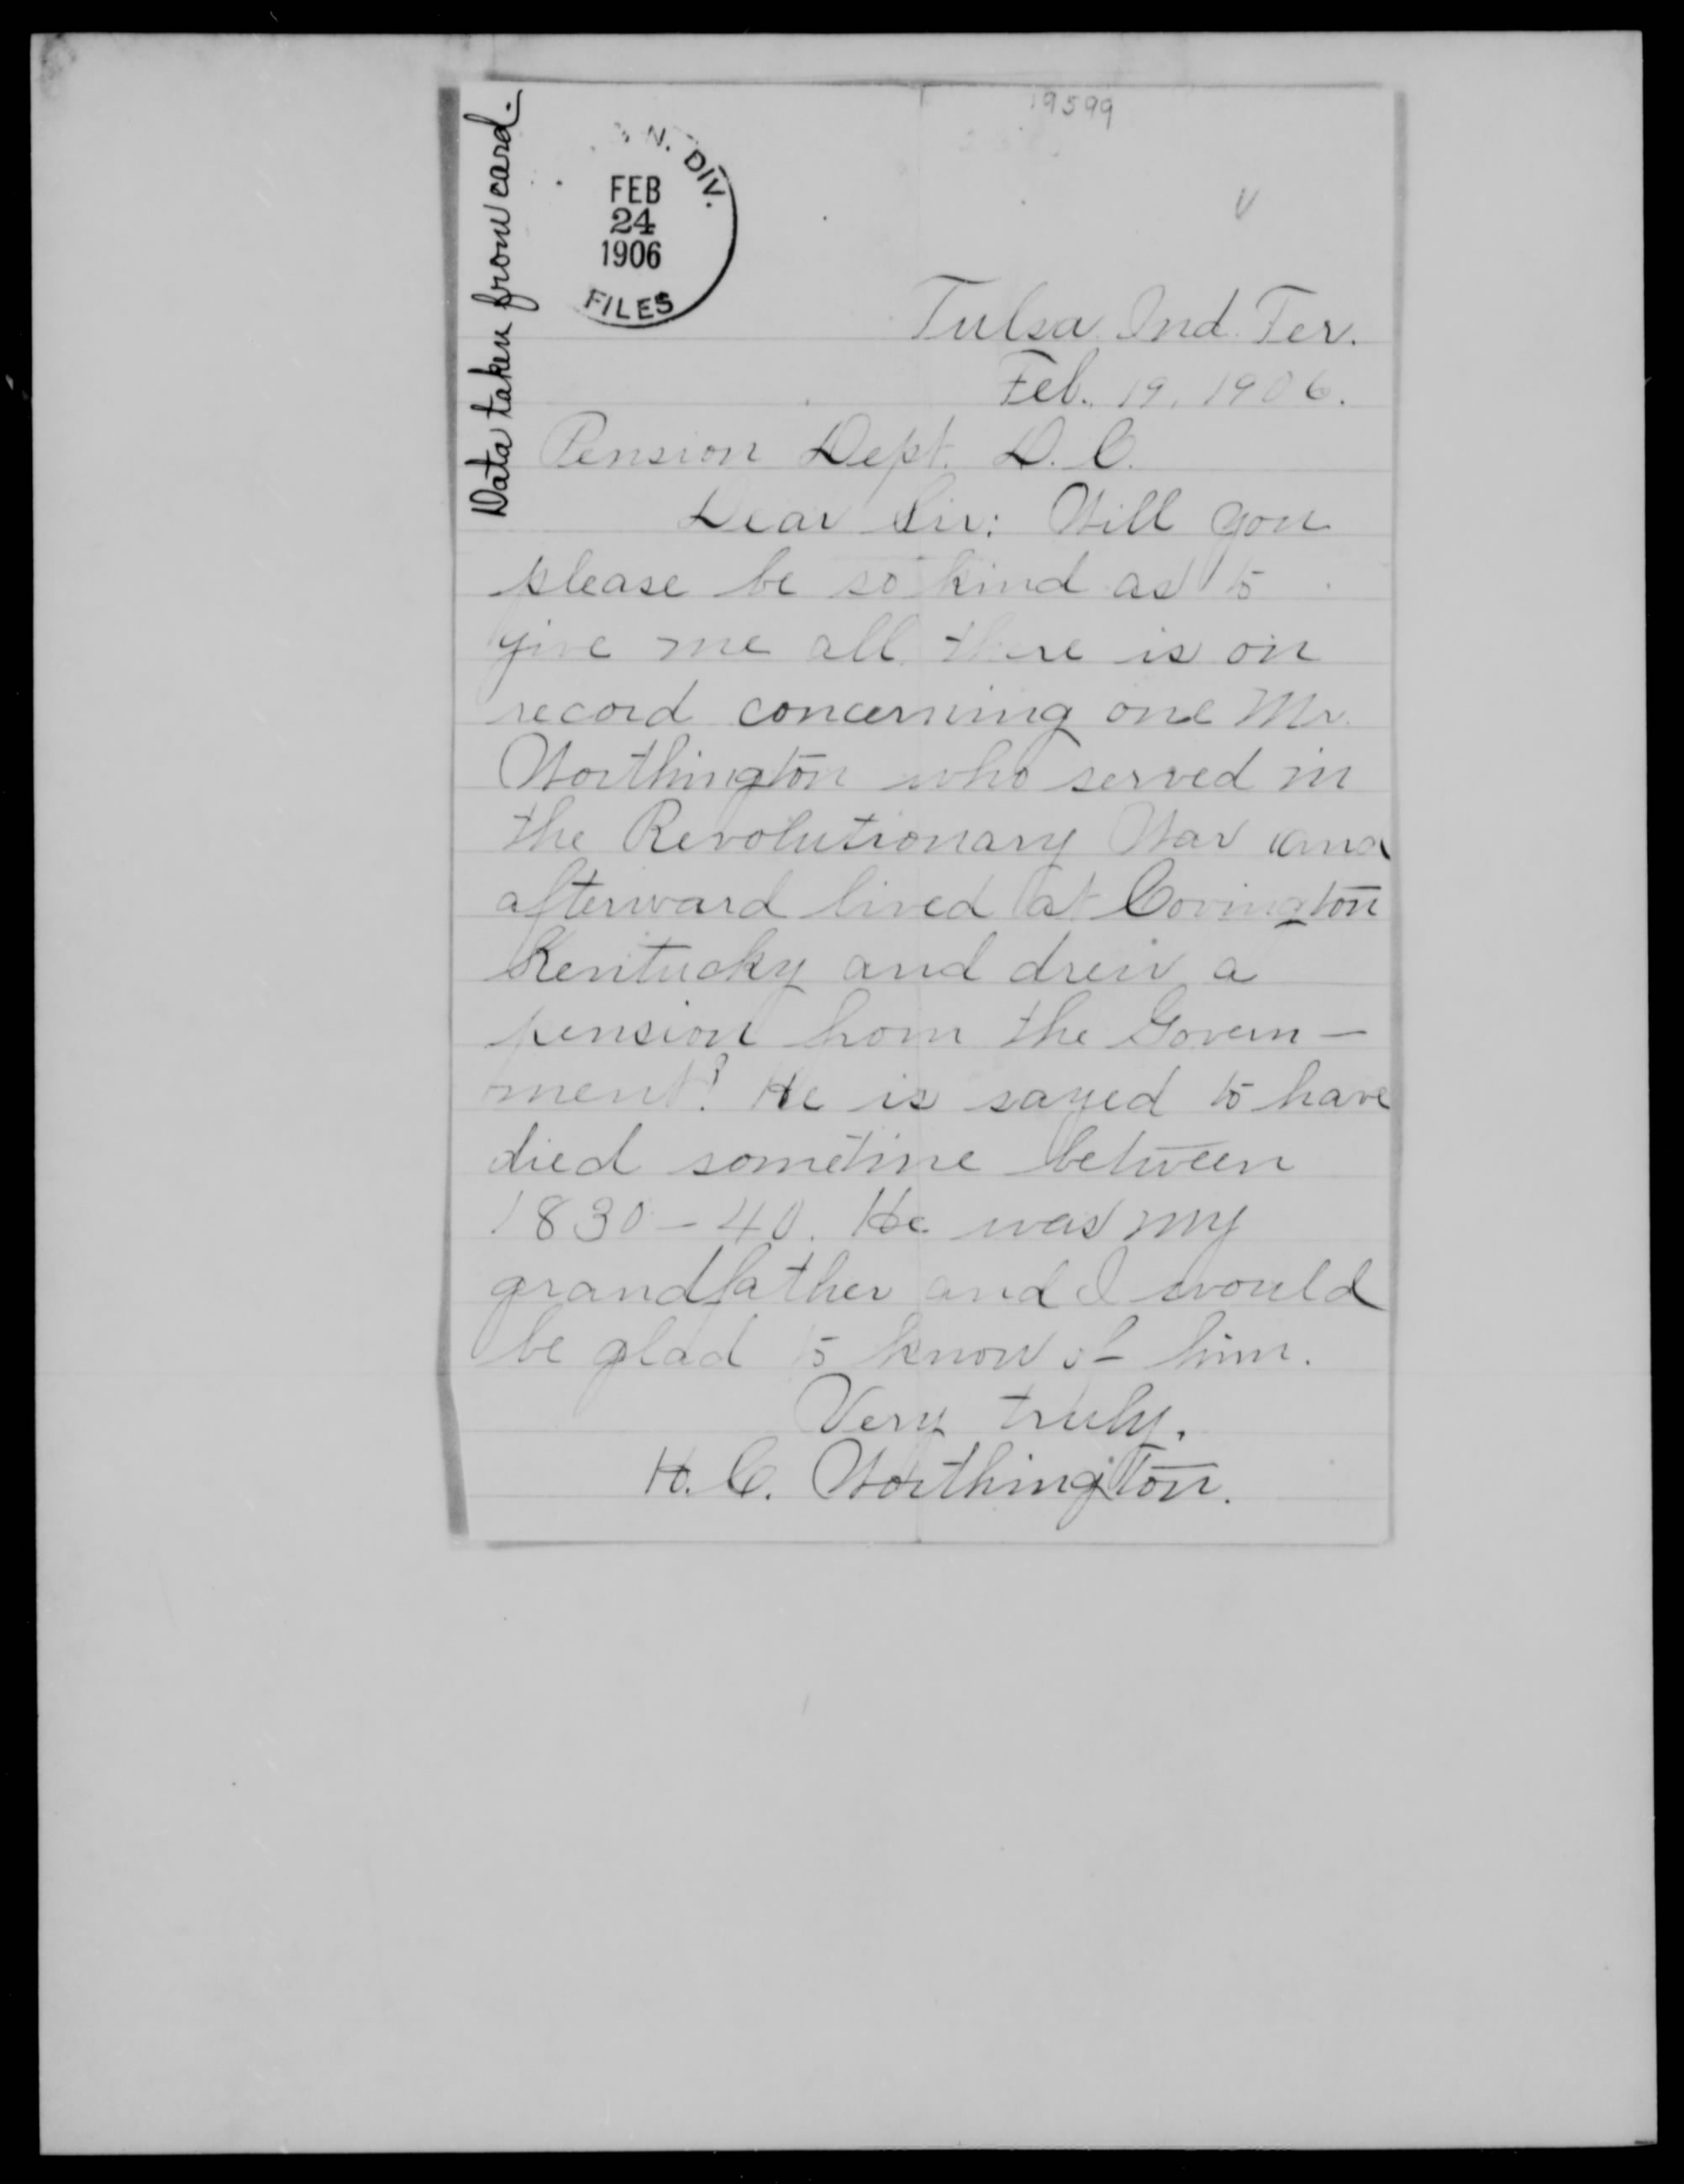 19599
Data taken from card.
N. DIV.
FEB
24
1906
FILES
Tulsa Ind. Ter.
Feb. 19, 1906.
Pension Dept. D. C.
Dear Sir: Will you
please be so kind as to
give me all there is on
record concerning one Mr.
Worthington who served in
the Revolutionary War and
afterward lived at Covington
Kentucky and drew a
pension from the Govern-
ment? He is sayed to have
died sometime between
1830-40. He was my
grandfather and I would
be glad to know of him.
Very truly,
H. C. Worthington.